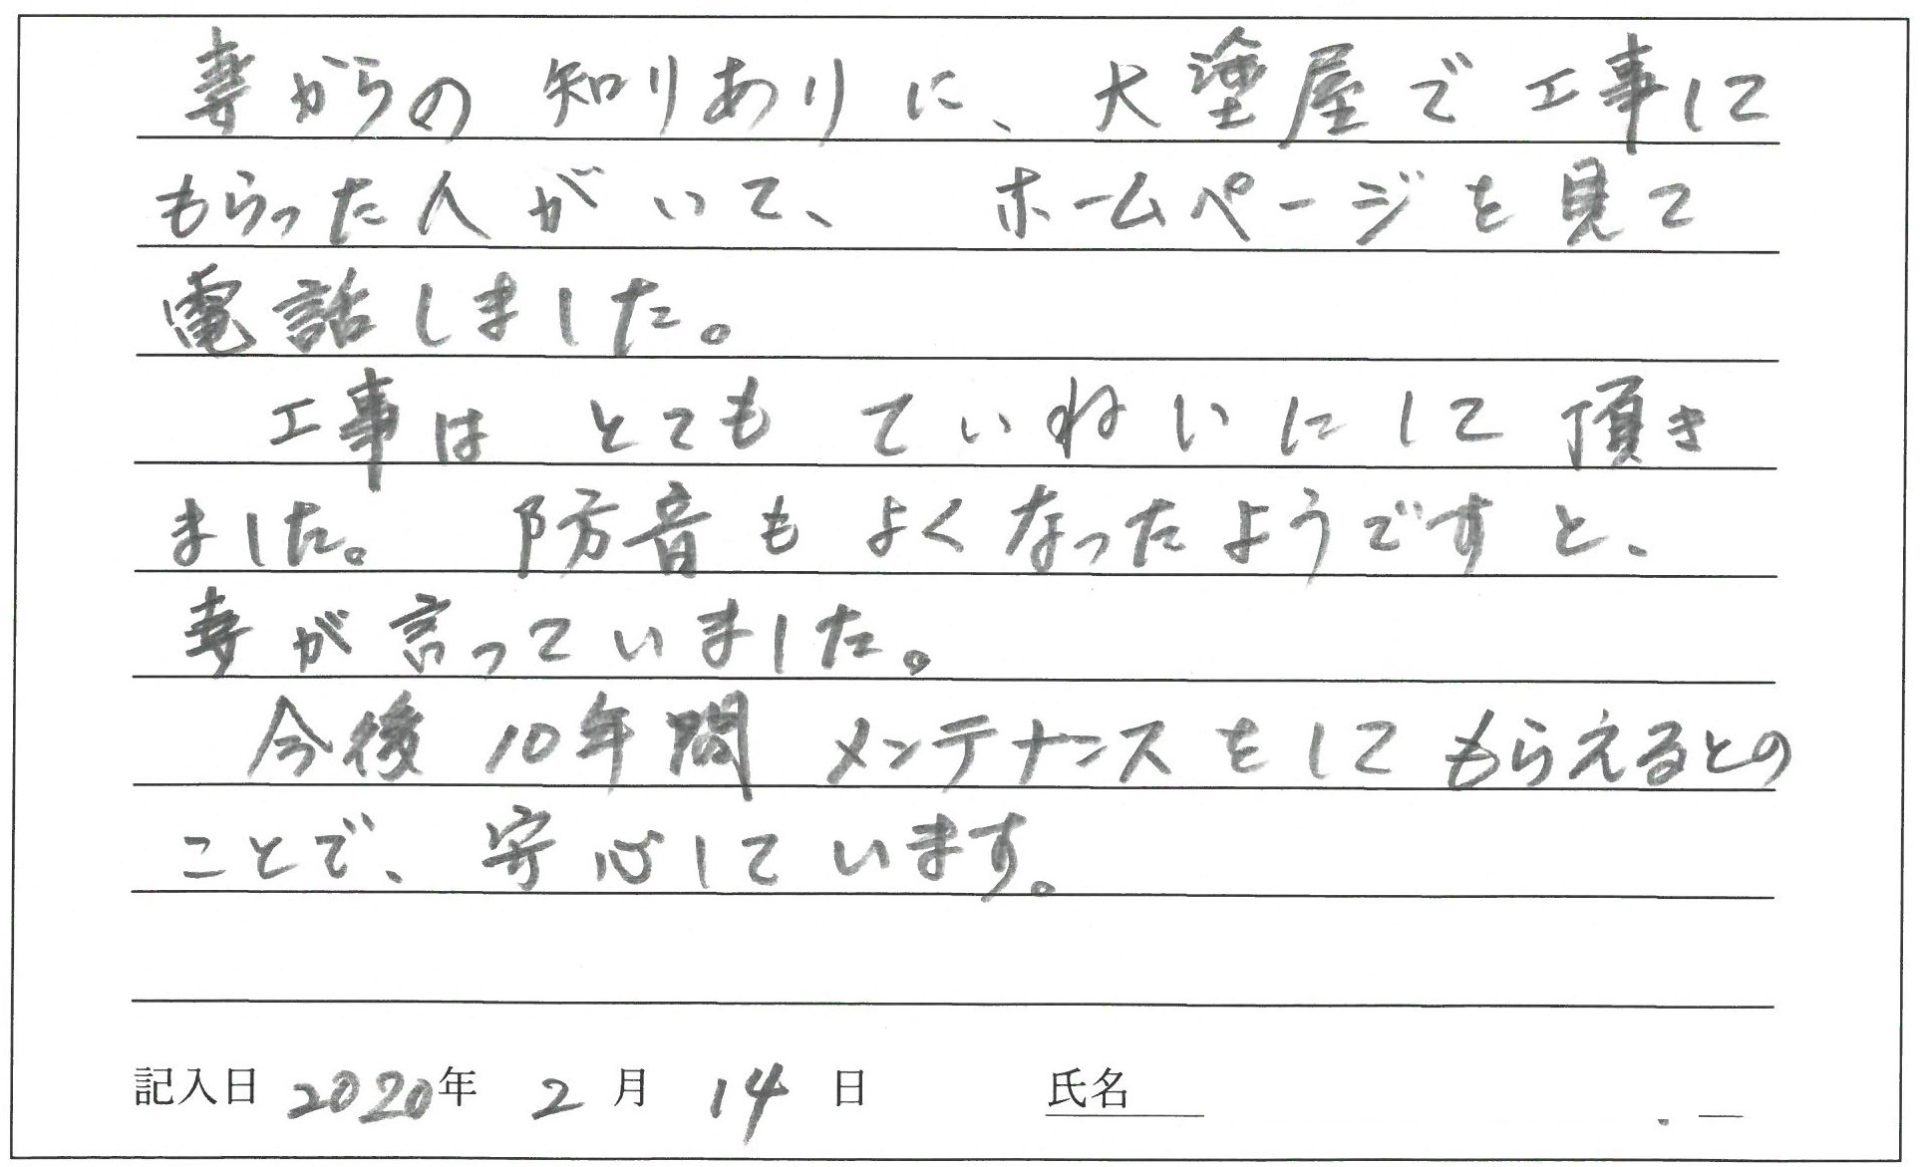 妻からの知りありに、大塗屋で工事して
もらった人がいて、 ホームページを見て
電話しました。
工事は とても ていねいにして頂き
ました。 防音もよくなったようですと、
妻が言っていました。
今後10年間 メンテナンスをしてもらえるとの
ことで、安心しています。
記入日 2020年 2月 14日 氏名